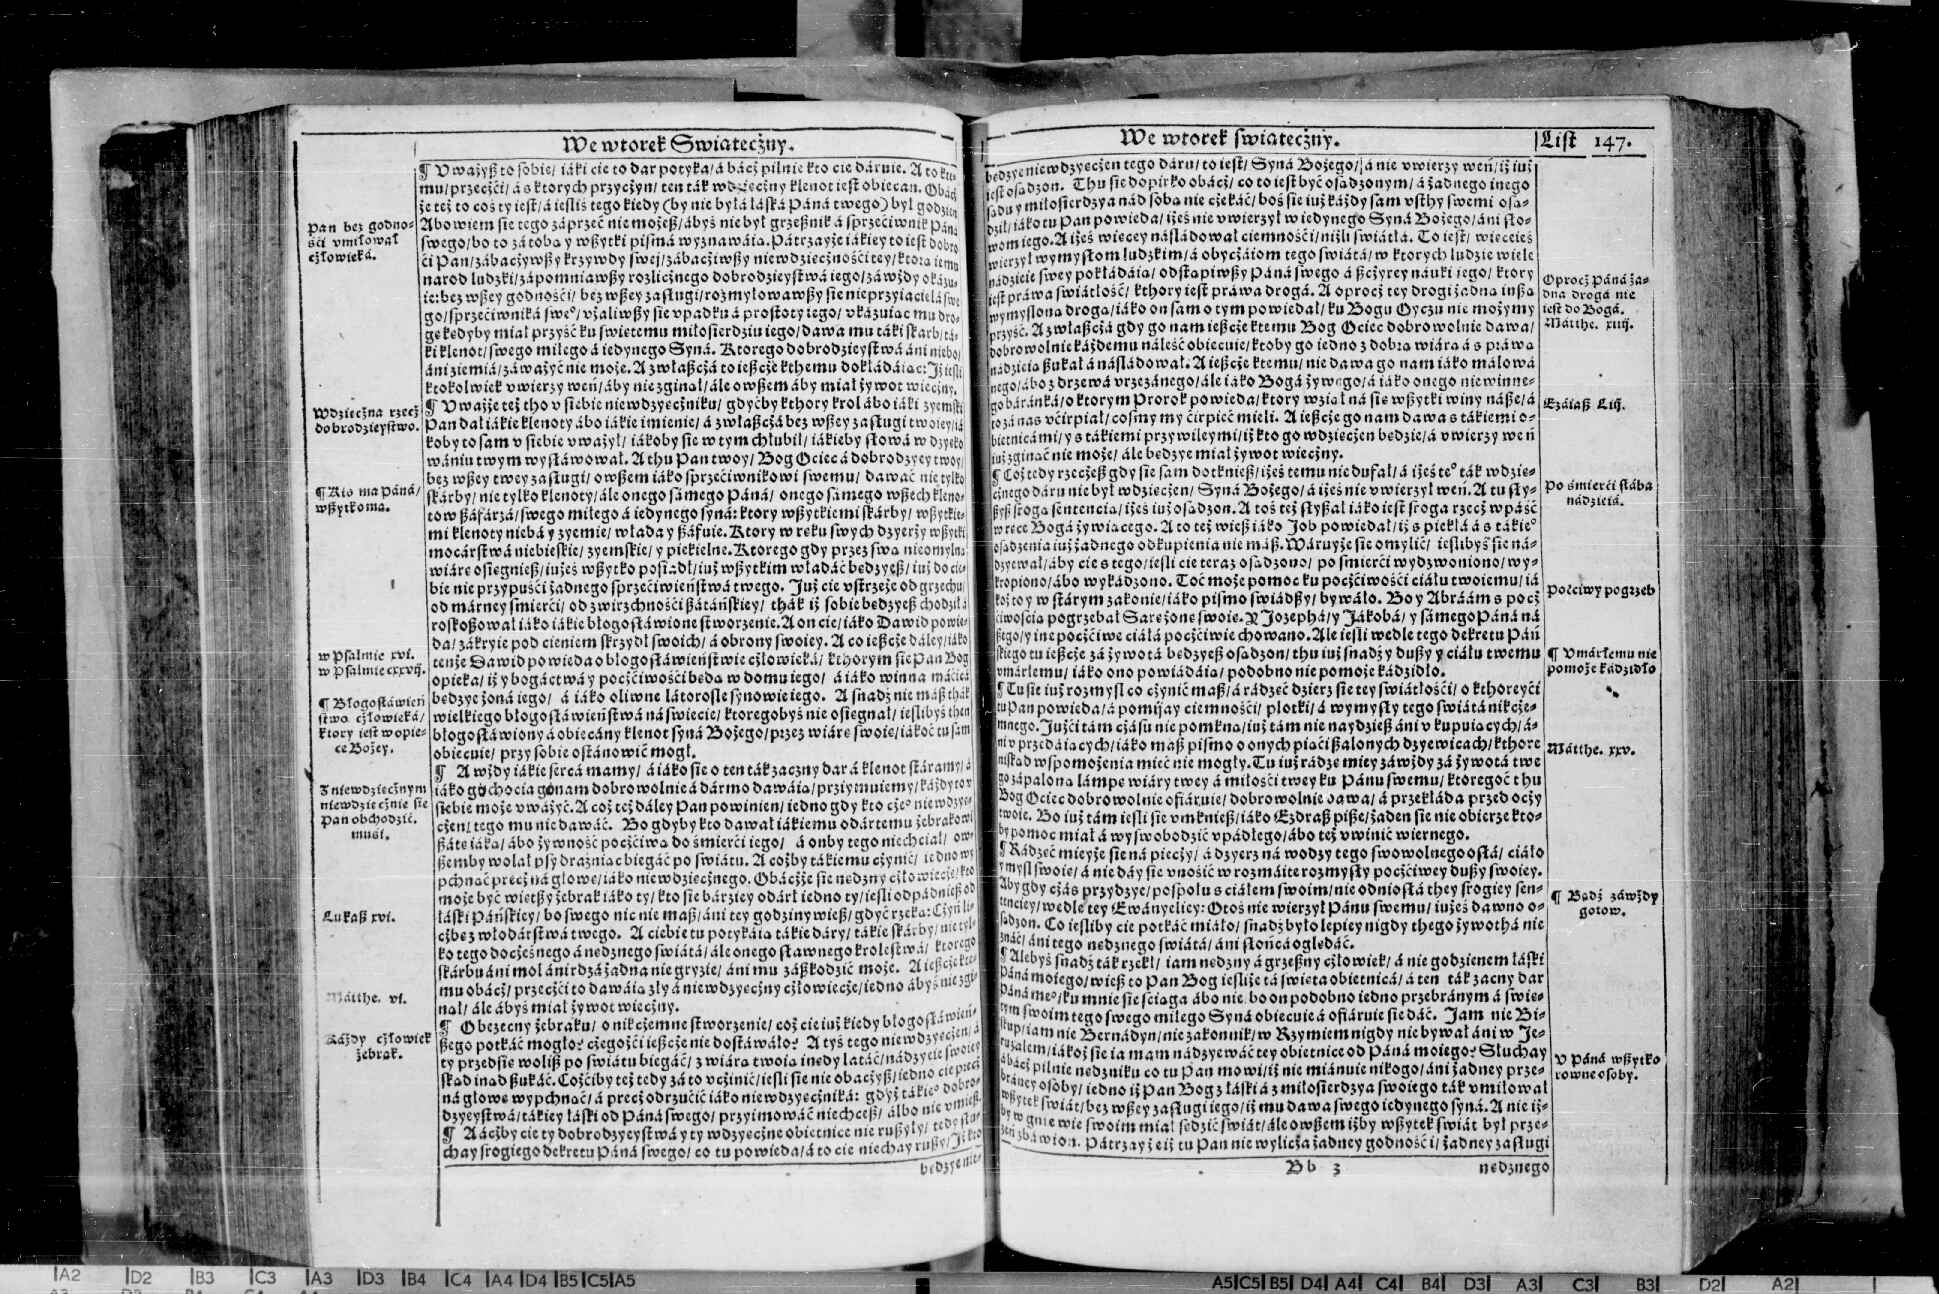 We wtorek Swiąteczny.
Pan bez godno-
ści vmiłował
człowieká.
Wdzięczna rzecż
dobrodzieystwo.
¶ Kto ma Páná/
wßytko ma.
w Psalmie xvi.
w Psalmie cxxvij.
¶ Błogosławień
stwo człowieká/
ktory iest w opie-
ce Bożey.
Z niewdzięcżnym
niewdzięcżnie sie
Pan obchodzić
musi.
Lukaß xvi.
Mátthe. vi.
Káżdy człowiek
żebrak.
¶ Vważyß to sobie/ iáki cie to dar potyka/ á bácż pilnie kto cie dáruie. A to
mu/ przecżći/ á s ktorych przycżyn/ ten ták wdzięcżny klenot iest obiecan. Obácż
że też to coś ty iest/ á ieśliś tego kiedy (by nie byłá łáská Páná twego) był godzien
Abowiem sie tego záprzeć nie możeß/ ábyś nie był grzeßnik á sprzećiwnik Páná
swego/ bo to zá tobą y wßytki pismá wyznawáią. Pátrzayże iákiey to iest dobro
ći Pan/ zábacżywßy krzywdy swej/ zábacżiwßy niewdzięcżnośći tey/ ktorą iemu
narod ludzki/ zápomniawßy rozlicżnego dobrodzieystwá iego/ záwżdy okázu-
ie: bez wßey godnośći/ bez wßey zasługi/ rozmyłowawßy sie nieprzyiacielá swe
go/ sprzećiwniká sweº/ vżaliwßy sie vpadku á prostoty iego/ vkázuiąc mu dro-
gę kędyby miał przyść ku świętemu miłosierdziu iego/ dawa mu táki skárb/ tá-
ki klenot/ swego miłego á iedynego Syná. Ktorego dobrodzieystwá áni niebo/
áni ziemiá/ záważyć nie może. A zwłaßcżá to ießcże kthemu dokłádáiąc: Iż iesli
ktokolwiek vwierzy weń/ áby nie zginął/ ále owßem áby miał żywot wiecżny.
¶ Vważże też tho v siebie niewdzyęcżniku/ gdyćby kthory krol ábo iáki zyemski
Pan dał iákie klenoty ábo iákie imienie/ á zwłaßcżá bez wßey zasługi twoiey/ iá
koby to sam v siebie vważył/ iákoby sie w tym chlubił/ iákieby słowá w dzyęko
wániu twym wystáwował. A thu Pan twoy/ Bog Ociec á dobrodzyey twoy/
bez wßey twey zasługi/ owßem iáko sprzećiwnikowi swemu/ dawáć nie tylko
skárby/ nie tylko klenoty/ ále onego sámego Páná/ onego sámego wßech kleno-
tow ßáfárzá/ swego miłego á iedynego syná: ktory wßytkiemi skárby/ wßytkie-
mi klenoty niebá y zyemie/ włada y ßáfuie. Ktory w ręku swych dzyerży wßytki
mocárstwá niebieskie/ zyemskie/ y piekielne. Ktorego gdy przez swą nieomylną
wiárę osięgnieß/ iużeś wßytko posiadł/ iuż wßytkim władáć będzyeß/ iuż do cie-
bie nie przypuśći żadnego sprzećiwieństwá twego. Już cie vstrzeże od grzechu/
od márney śmierći/ od zwirzchnośći ßátáńskiey/ thák iż sobie będzyeß chodził á
roskoßował iáko iákie błogosławione stworzenie. A on cie/ iáko Dawid powie-
da/ zákryie pod cieniem skrzydł swoich/ á obrony swoiey. A co ießcże dáley/ iáko
tenże Dawid powieda o błogosławieństwie człowieká/ kthorym sie Pan Bog
opieka/ iż y bogáctwá y pocżćiwośći będą w domu iego/ á iáko winna máćicá
będzye żoná iego/ á iáko oliwne latorośle synowie iego. A snadź nie máß thák
wielkiego błogosławieństwá ná świecie/ ktoregobyś nie osięgnął/ ieslibyś then
błogosławiony á obiecány klenot syná Bożego/ przez wiárę swoię/ iákoć tu sam
obiecuie/ przy sobie ostánowić mogł.
¶ A wżdy iákie sercá mamy/ á iáko sie o ten ták zacny dar á klenot stáramy/ á
iáko go chocia go nam dobrowolnie á dármo dawáią/ przyimuiemy/ káżdy to v
siebie może vważyć. A coż też dáley Pan powinien/ iedno gdy kto cżeº niewdzyę-
cżen/ tego mu nie dawáć. Bo gdyby kto dawał iákiemu odártemu żebrakowi
ßátę iáką/ ábo żywność pocżćiwą do śmierći iego/ á onby tego niechciał/ ow-
ßemby wolał psy drażniąc biegáć po świátu. A cożby tákiemu cżynić/ iedno wy
pchnąć precż ná głowę/ iáko niewdzięcżnego. Obácżże sie nędzny człowiecże/ kto
może być więtßy żebrak iáko ty/ kto sie bárziey odárł iedno ty/ iesli odpádnieß od
łáski Páńskiey/ bo swego nic nie maß/ áni tey godziny wieß/ gdyć rzeką: Cżyń li-
cżbę z włodárstwá twego. A ciebie tu potykáią tákie dáry/ tákie skárby/ nie tyl-
ko tego docżesnego á nędznego świátá/ ále onego sławnego krolestwá/ ktorego
skárbu áni mol áni rdzá żadna nie gryzie/ áni mu záßkodzić może. A ießcże kte-
mu obácż/ przecżći to dawáią zły á niewdzyęcżny człowiecże/ iedno ábyś nie zgi-
nął/ ále ábyś miał żywot wiecżny.
¶ O bezecny żebraku/ o nikcżemne stworzenie/ coż cie iuż kiedy błogosławień-
ßego potkáć mogło? cżegożći ießcże nie dostawáło? A tyś tego niewdzyęcżen/ á
ty przedsię woliß po świátu biegáć/ z wiárą twoią inędy latáć/ nádzyeie swoiey
skąd inąd ßukáć. Cożćiby też tedy zá to vcżinić/ iesli sie nie obacżyß/ iedno cie precż
ná głowę wypchnąć/ á precż odrzućić iáko niewdzyęcżniká: gdyż tákieº dobro-
dzyeystwá/ tákiey łáski od Páná swego/ przyimowáć niechceß/ álbo nie vmieß.
¶ A ácżby cie ty dobrodzyeystwá y ty wdzyęcżne obietnice nie rußyły/ tedy słu-
chay srogiego dekretu Páná swego/ co tu powieda/ á to cie niechay rußy/ Iż kto
będzye nie-
We wtorek świąteczny.
List 147.
będzye niewdzyęcżen tego dáru/ to iest/ Syná Bożego/ á nie vwierzy weń/ iż iuż
iest osądzon. Thu sie dopirko obácż/ co to iest być osądzonym/ á żadnego inego
sądu y miłosierdzya nád sobą nie cżekáć/ boś sie iuż káżdy sam vsthy swemi osą-
dził/ iáko tu Pan powieda/ iżeś nie vwierzył w iedynego Syná Bożego/ áni sło-
wom iego. A iżeś więcey násládował ciemnośći/ niżli świátłá. To iest/ więceieś
wierzył wymysłom ludzkim/ á obycżáiom tego świátá/ w ktorych ludzie wiele
nádzieie swey pokłádáią/ odstąpiwßy Páná swego á ßcżyrey náuki iego/ ktory
iest práwa świátłość/ kthory iest práwa drogá. A oprocż tey drogi żadna inßa
wymyślona drogá/ iáko on sam o tym powiedał/ ku Bogu Oycżu nie możymy
przyść. A zwłaßcżá gdy go nam ießcże ktemu Bog Ociec dobrowolnie dawa/
dobrowolnie káżdemu náleść obiecuie/ ktoby go iedno z dobrą wiárą á s práwą
nádzieią ßukał á násládował. A ießcże ktemu/ nie dawa go nam iáko málowá
nego/ ábo z drzewá vrzezánego/ ále iáko Bogá żywego/ á iáko onego niewinne-
go báránká/ o ktorym Prorok powieda/ ktory wziął ná się wßytki winy náße/ á
to zá nas vćirpiał/ cosmy my ćirpieć mieli. A ießcże go nam dawa s tákiemi o-
bietnicámi/ y s tákiemi przywileymi/ iż kto go wdzięcżen będzie/ á vwierzy weń
iuż zginąć nie może/ ále będzye miał żywot wiecżny.
¶ Coż tedy rzecżeß gdy sie sam dotknieß/ iżeś temu nie dufał/ á iżeś teº ták wdzię-
cżnego dáru nie był wdzięcżen/ Syná Bożego/ á iżeś nie vwierzył weń. A tu sły-
ßyß sroga sentencia/ iżeś iuż osądzon. A toś też słyßał iáko iest sroga rzecż wpáść
w ręce Bogá żywiącego. A to też wieß iáko Job powiedał/ iż s piekłá á s tákieº
osądzenia iuż żadnego odkupienia nie máß. Wáruyże sie omylić/ ieslibyś sie ná-
dzyewał/ áby cie s tego/ iesli cie teraz osądzono/ po śmierći wydzwoniono/ wy-
kropiono/ ábo wykádzono. Toć może pomoc ku pocżćiwośći ciáłu twoiemu/ iá
koż to y w stárym zakonie/ iáko pismo świadßy/ bywáło. Bo y Abráám s pocż
ćiwością pogrzebał Sarę żonę swoię. Y Jozephá/ y Jákobá/ y sámego Páná ná
ßego/ y ine pocżćiwe ciáłá pocżćiwie chowano. Ale iesli wedle tego dekretu Páń
skiego tu ießcże zá żywotá będzyeß osądzon/ thu iuż snadźy dußy y ciáłu twemu
vmárłemu/ iáko ono powiádáią/ podobno nie pomoże kádzidło.
¶ Tu sie iuż rozmyśl co cżynić maß/ á rádzęć dzierż sie tey świátłośći/ o kthoreyći
tu Pan powieda/ á pomijay ciemnośći/ plotki/ á wymysły tego świátá nikcże-
mnego. Jużći tám cżásu nie pomkną/ iuż tám nie naydzieß áni v kupuiących/ á-
ni v przedáiących/ iáko maß pismo o onych piąći ßalonych dzyewicach/ kthore
niskąd wspomożenia mieć nie mogły. Tu iuż rádzę miey záwżdy zá żywotá twe
go zápaloną lámpę wiáry twey á miłośći twey ku Pánu swemu/ ktoregoć thu
Bog Ociec dobrowolnie ofiáruie/ dobrowolnie dawa/ á przekłáda przed ocży
twoie. Bo iuż tám iesli sie vmknieß/ iáko Ezdraß piße/ żaden sie nie obierze kto-
by pomoc miał á wyswobodzić vpádłego/ ábo też vwinić wiernego.
¶ Rádzęć mieyże sie ná piecży/ á dzyerż ná wodzy tego swowolnego osłá/ ciáło
y myśl swoię/ á nie day sie vnośić w rozmáite rozmysły pocżćiwey dußy swoiey.
Aby gdy cżás przydzye/ pospołu s ciáłem swoim/ nie odniosłá they srogiey sen-
tenciey/ wedle tey Ewányeliey: Otoś nie wierzył Pánu swemu/ iużeś dawno o-
sądzon. Co iesliby cie potkáć miáło/ snadź było lepiey nigdy thego żywothá nie
znáć/ áni tego nędznego świátá/ áni słońcá oględáć.
¶ Alebyś snadź ták rzekł/ iam nędzny á grzeßny człowiek/ á nie godzienem łáski
Páná moiego/ wieß to Pan Bog iesliże tá święta obietnicá/ á ten ták zacny dar
Páná meº/ ku mnie sie śćiąga ábo nie. bo on podobno iedno przebránym á świę-
tym swoim tego swego miłego Syná obiecuie á ofiáruie sie dáć. Jam nie Bi-
skup/ iam nie Bernádyn/ nie zakonnik/ w Rzymiem nigdy nie bywał áni w Je-
ruzalem/ iákoż sie ia mam nádzyewáć tey obietnice od Páná moiego? Słuchay
á bácż pilnie nędzniku co tu Pan mowi/ iż nie miánuie nikogo/ áni żadney prze-
bráney osoby/ iedno iż Pan Bog z łáski á z miłosierdzya swoiego ták vmiłował
wßytek świát/ bez wßey zasługi iego/ iż mu dawa swego iedynego syná. A nie iż-
by w gniewie swoim miał sędzić świát/ ále owßem iżby wßytek świát był prze-
zeń zbáwion. Pátrzayże iż tu Pan nie wylicża żadney godnośći/ żadney zasługi
Bb 3
nędznego
Oprocż Páná ża-
dna drogá nie
iest do Bogá.
Mátthe. xiiij.
Ezáiaß Liij.
Po śmierći słába
nádzieiá.
Poćciwy pogrzeb
¶ Vmárłemu nie
pomoże kádzidło
Mátthe. xxv.
¶ Bądź záwżdy
gotow.
V Páná wßytko
rowne osoby.
A2 D2 B3 C3 A3 D3 B4 C4 A4 D4 B5 C5 A5
A5 C5 B5 D4 A4 C4 B4 D3 A3 C3 B3 D2 A2